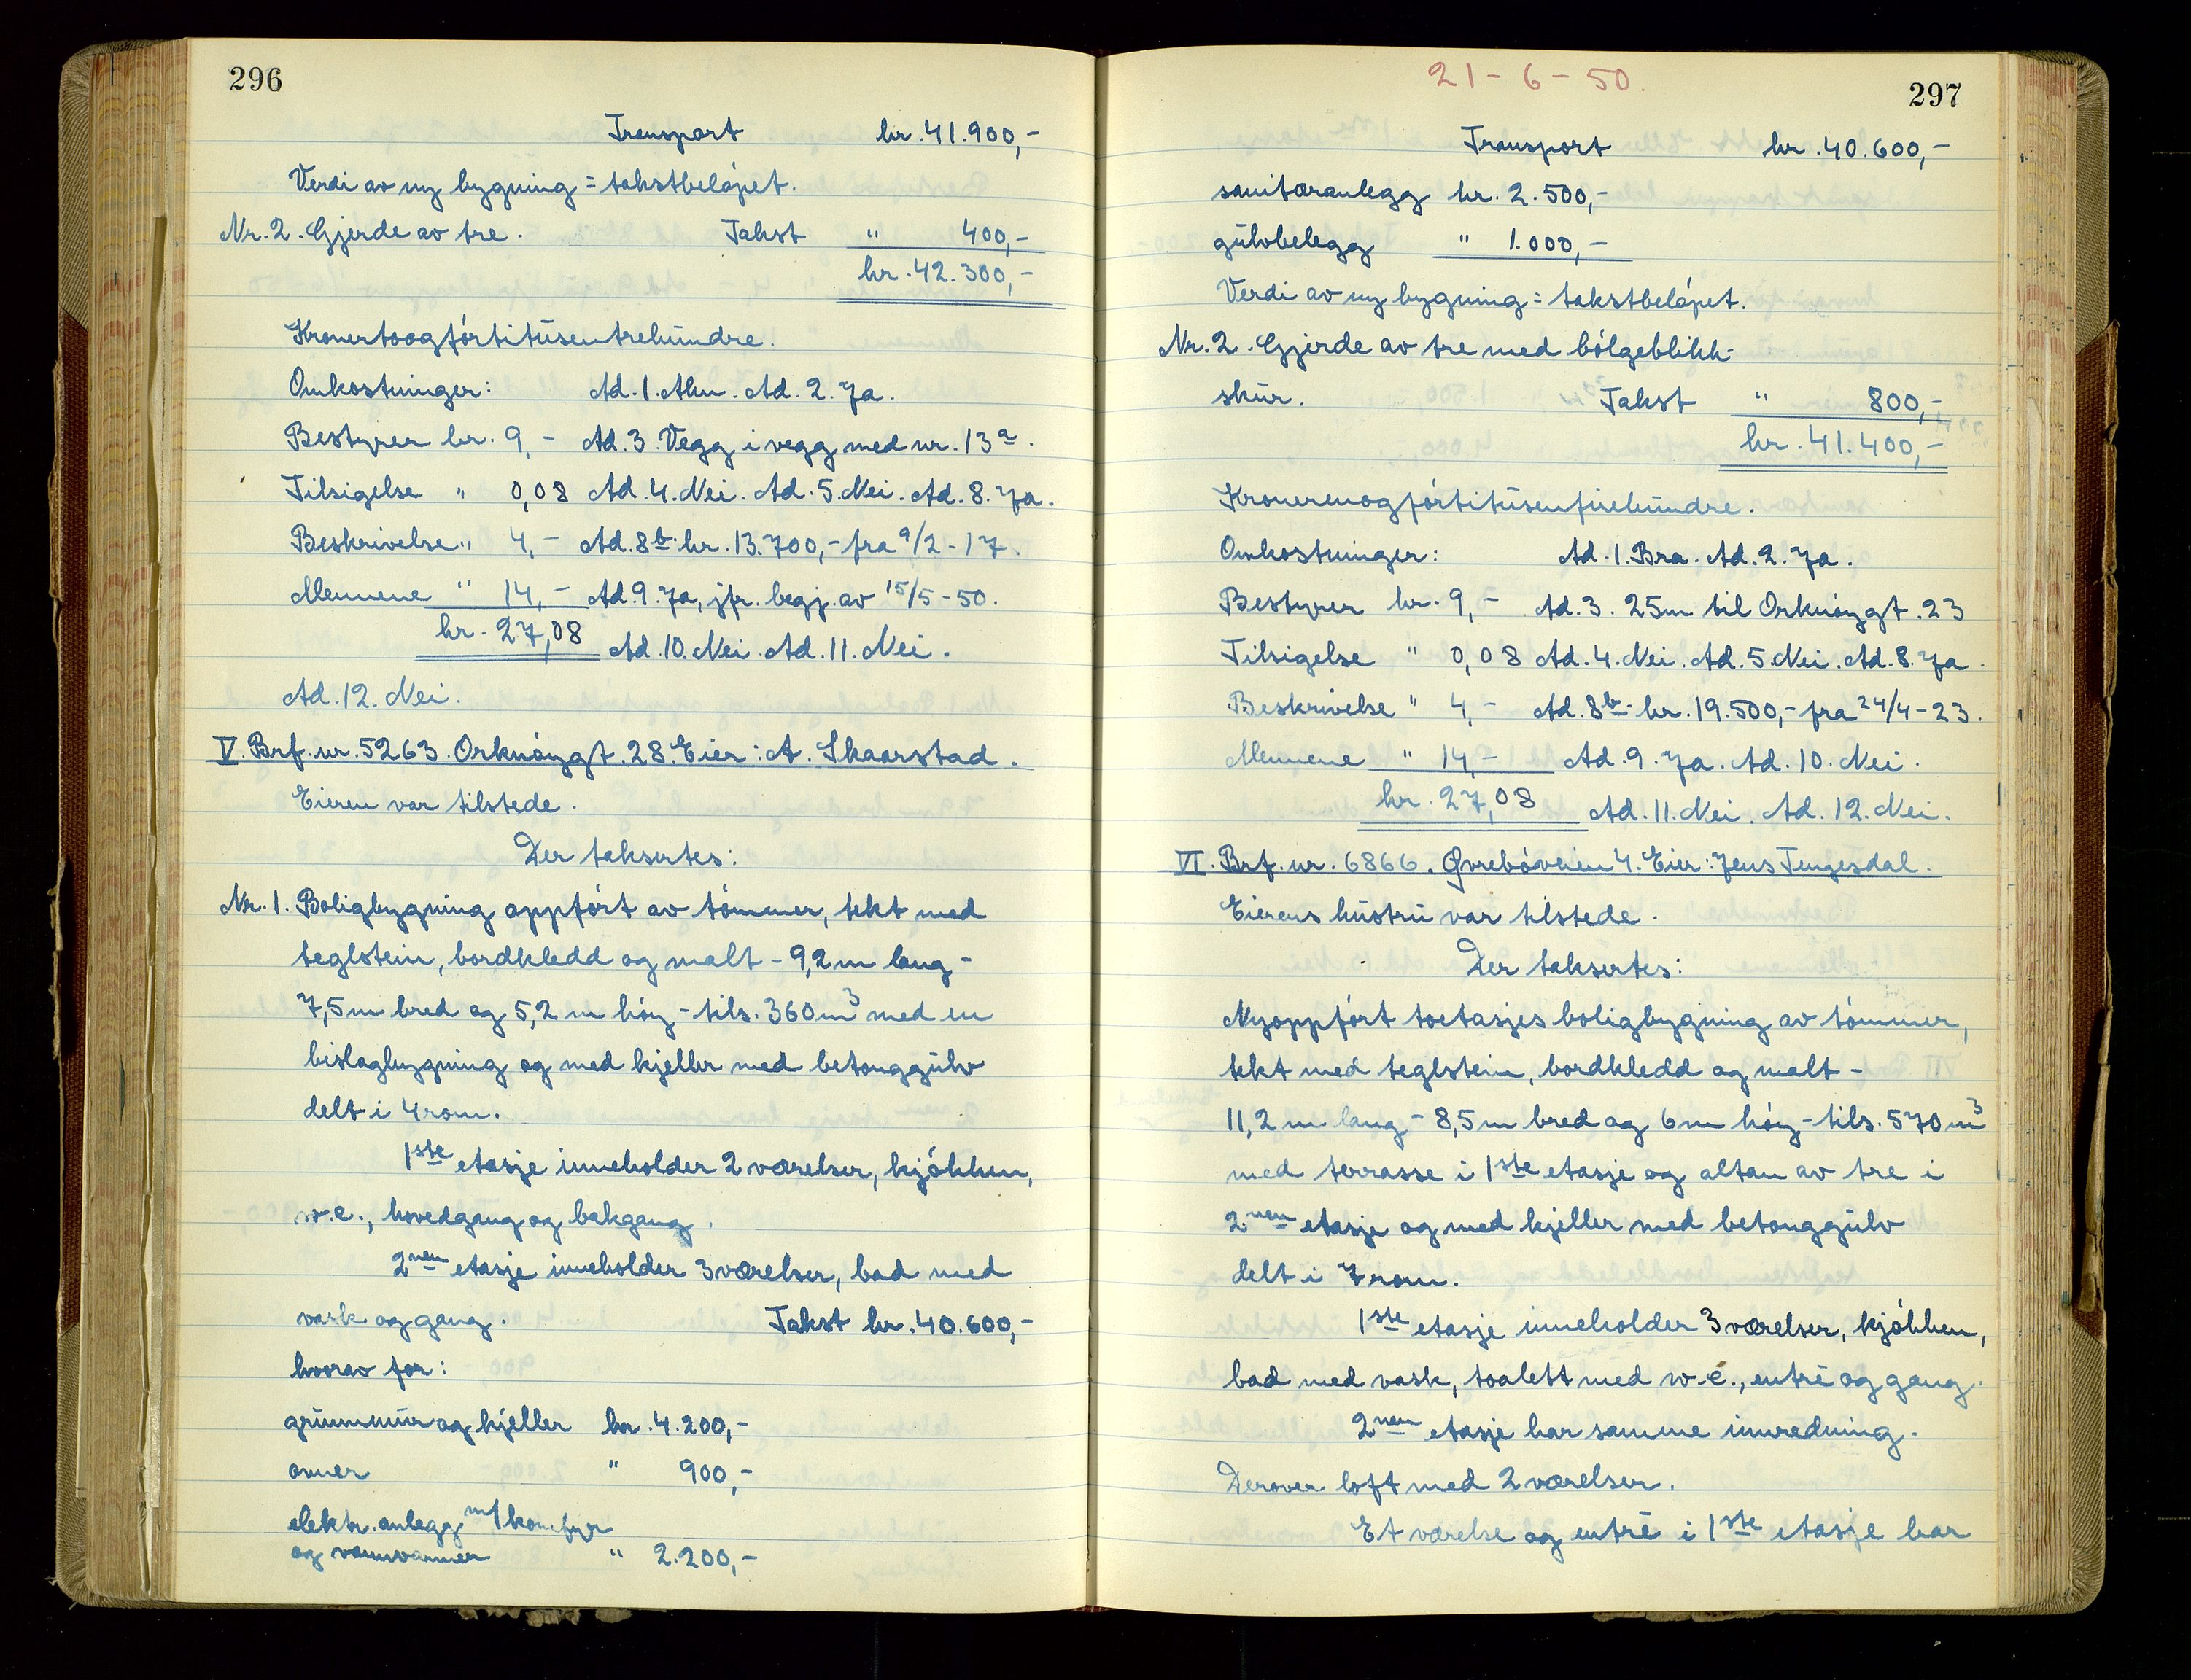 296
Transport kr. 41.900,-
Verdi av ny bygning = takstbeløpet.
Nr. 2. Gjerde av tre. Takst " 400,-
kr. 42.300,-
Kronertoogførtitusentrehundre.
Omkostninger: Ad. 1. Alm. Ad. 2. Ja.
Bestyrer kr. 9,- Ad. 3. Vegg i vegg med nr. 13ª.
Tilsigelse " 0,08 Ad. 4. Nei. Ad. 5. Nei. Ad. 8. Ja.
Beskrivelse " 4,- Ad. 8b. kr. 13.700,- fra 9/2-17.
Mennene " 14,- Ad. 9. Ja, jfr. begj. av 15/5-50.
kr. 27,08 Ad. 10. Nei. Ad. 11. Nei.
Ad. 12. Nei.
V. Brf. nr. 5263. Orknøygt. 28. Eier: A. Skaarstad.
Eieren var tilstede.
Der taksertes:
Nr. 1. Boligbygning oppført av tømmer, tekt med
teglstein, bordkledd og malt - 9,2 m lang -
7,5 m bred og 5,2 m høy - tils. 360 m³ med en
bislagbygning og med kjeller med betonggulv
delt i 4 rom.
1ste etasje inneholder 2 værelser, kjøkken,
w.c., hovedgang og bakgang.
2nen etasje inneholder 3 værelser, bad med
vask og gang. Takst kr. 40.600,-
hvorav for:
grunnmur og kjeller kr. 4.200,-
ovner " 900,-
elektr. anlegg m/komfyr
og vannvarmer " 2.200,-
21-6-50.
297
Transport kr. 40.600,-
sanitæranlegg kr. 2.500,-
gulvbelegg " 1.000,-
Verdi av ny bygning = takstbeløpet.
Nr. 2. Gjerde av tre med bølgeblikk-
skur. Takst " 800,-
kr. 41.400,-
Kronerenogførtitusenfirehundre.
Omkostninger: Ad. 1. Bra. Ad. 2. Ja.
Bestyrer kr. 9,- Ad. 3. 25m til Orknøygt. 23
Tilsigelse " 0,08 Ad. 4. Nei. Ad. 5. Nei. Ad. 8. Ja.
Beskrivelse " 4,- Ad. 8b. kr. 19.500,- fra 24/4-23.
Mennene " 14,- Ad. 9. Ja. Ad. 10. Nei.
kr. 27,08 Ad. 11. Nei. Ad. 12. Nei.
VI. Brf. nr. 6866. Øvrebøveien 4. Eier: Jens Tengesdal.
Eierens hustru var tilstede.
Der taksertes:
Nyoppført toetasjes boligbygning av tømmer,
tekt med teglstein, bordkledd og malt -
11,2 m lang - 8,5 m bred og 6 m høy - tils. 570 m³
med terrasse i 1ste etasje og altan av tre i
2nen etasje og med kjeller med betonggulv
delt i 7 rom.
1ste etasje inneholder 3 værelser, kjøkken,
bad med vask, toalett med w.c., entré og gang.
2nen etasje har samme innredning.
Derover loft med 2 værelser.
Et værelse og entré i 1ste etasje har